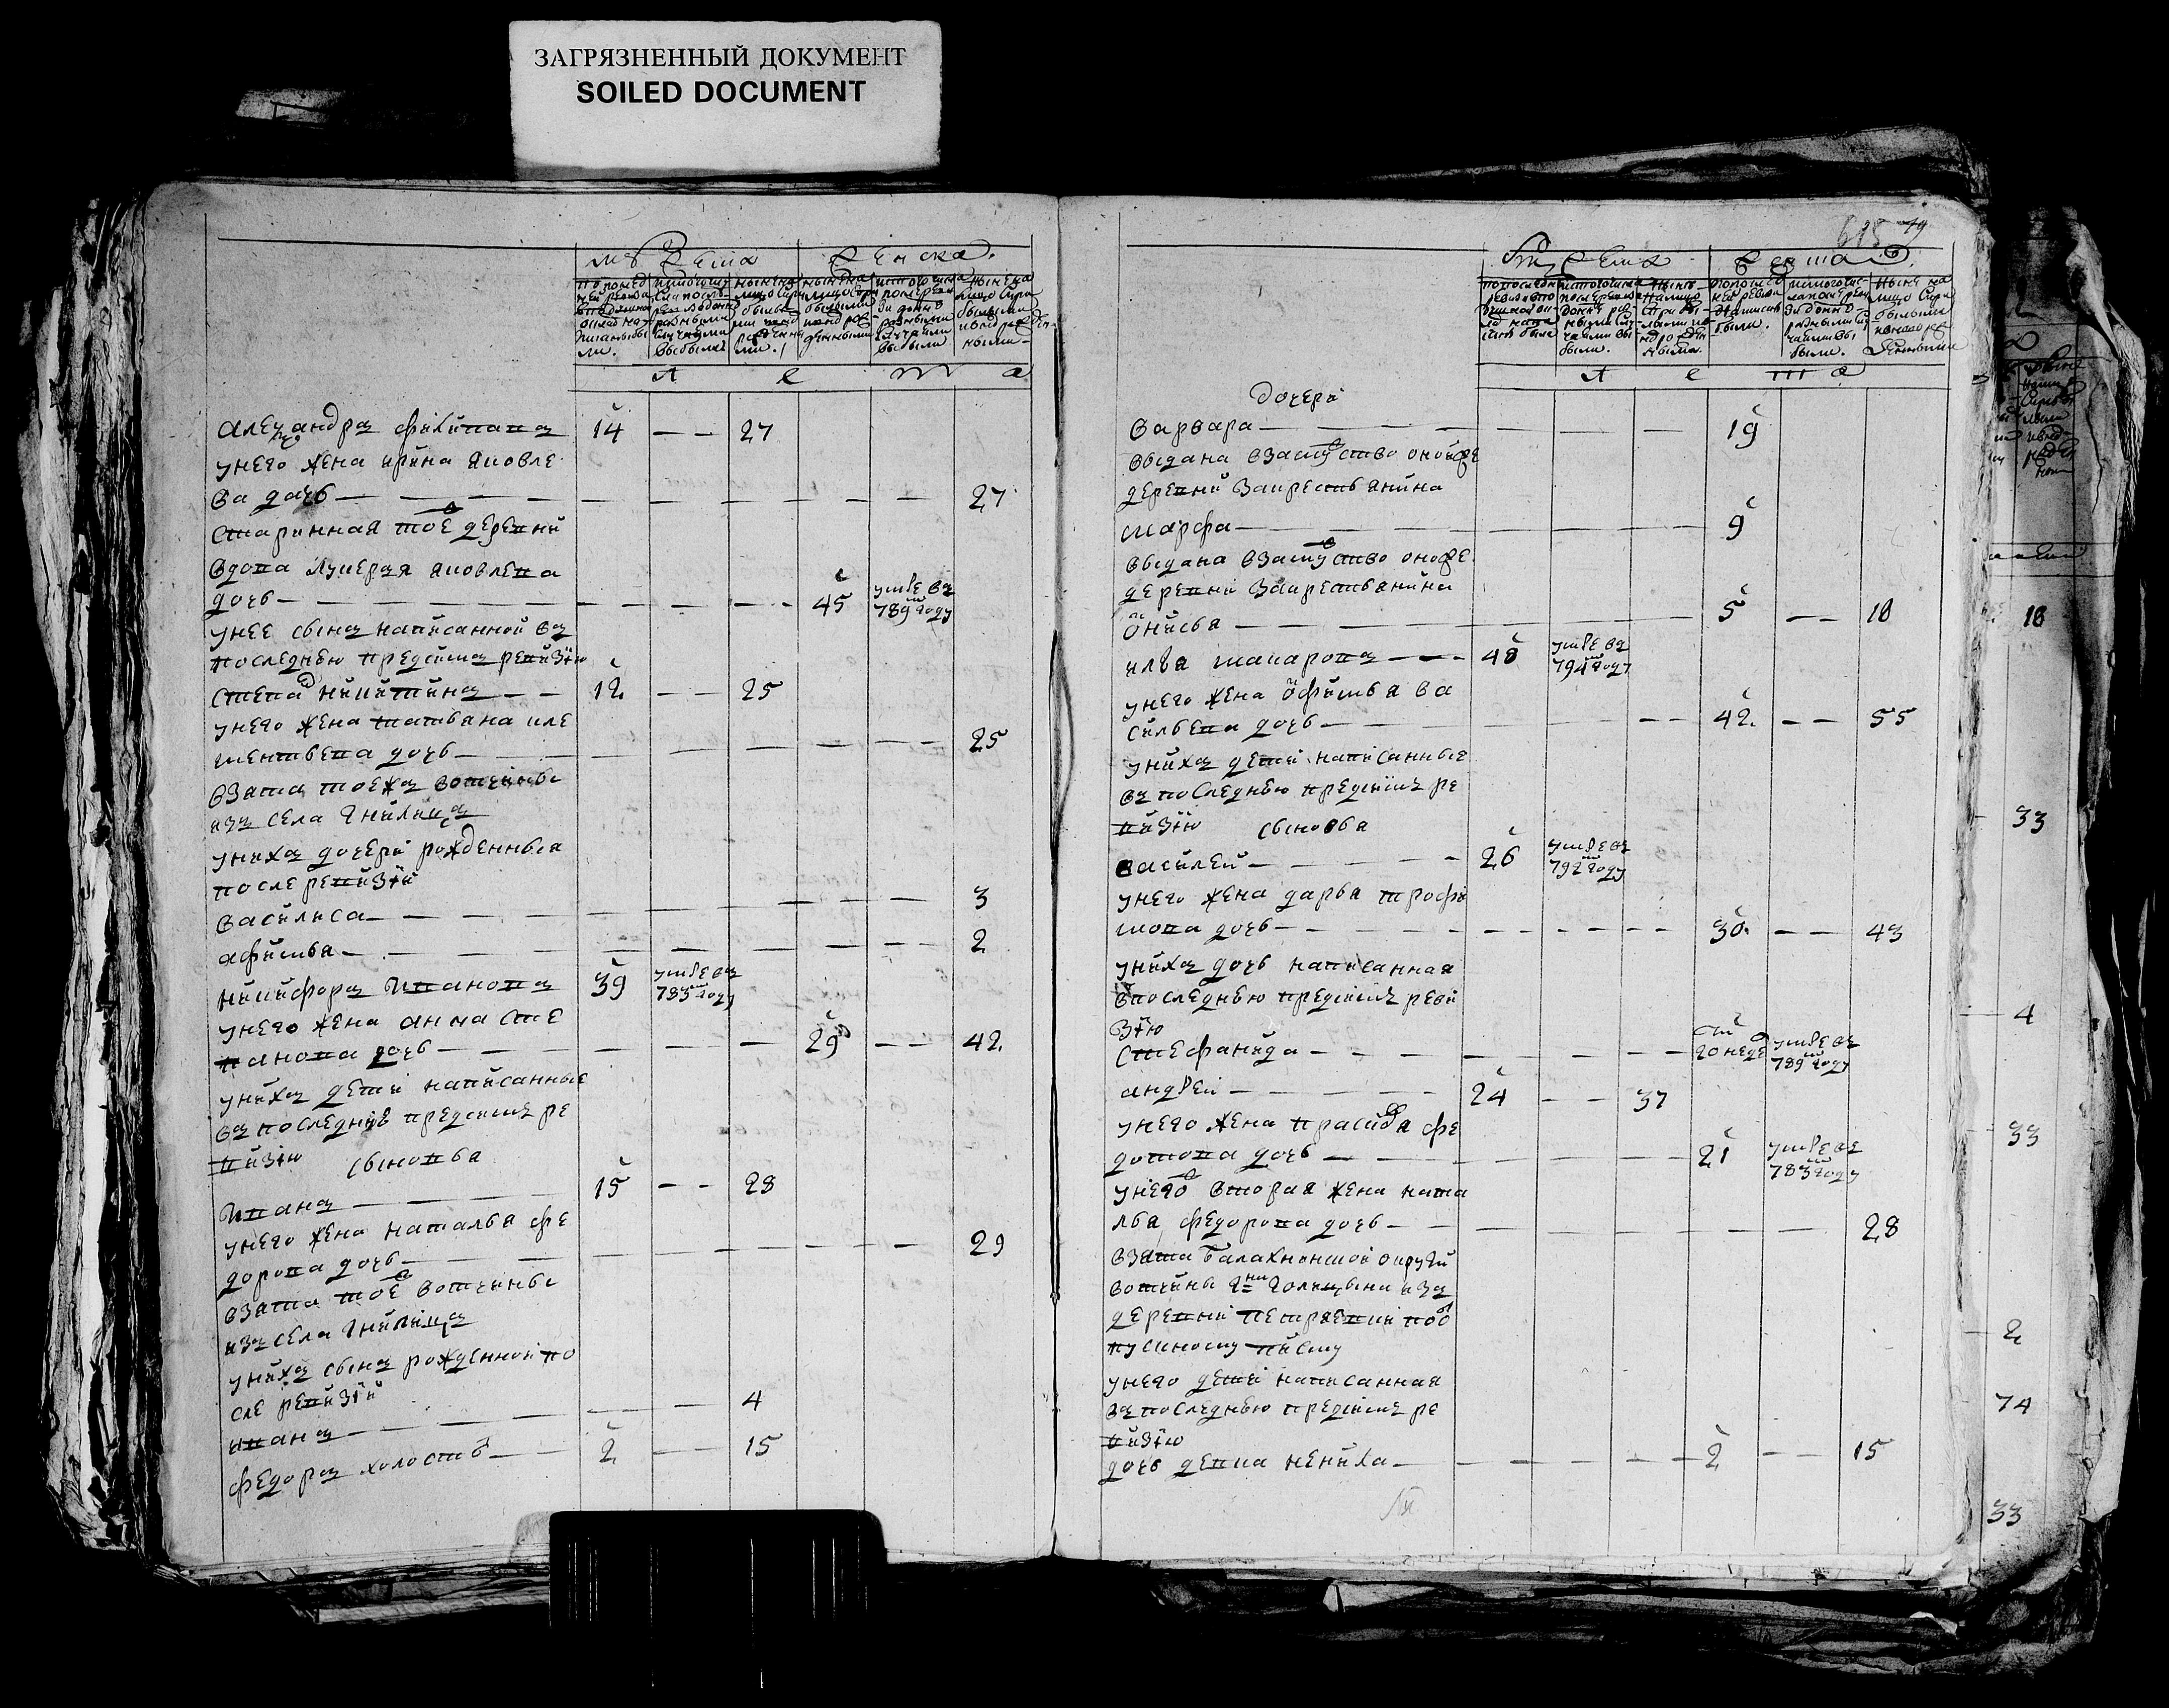 ЗАГРЯЗНЕННЫЙ ДОКУМЕНТ
SOILED DOCUMENT
мужеска женска
л е т а
александръ филипавъ 14 — — 27
унего жена ирина яковле
ва дочь — — — 27
старинная тое деревни
вдова лукерья яковлева
дочь — — — 45 умре въ 789 году
унее сынъ написанной въ
последнею предсимъ ревизiю
степанъ никитинъ — — 12 — — 25
унего жена татьяна кле
ментьева дочь — — — 25
взята тоежъ вотчины
изъ села гнилицъ
унихъ дочери рожденныя
после ревизiи
василиса — — — 3
афимья — — — 2
никифоръ ивановъ 39 умре въ 783 году
унего жена анна сте
панова дочь — — — 29 — — 42
унихъ дети написанные
въ последнею предсимъ ре
визiю сыновья
иванъ — — — 15 — — 28
унего жена наталья фе
дорова дочь — — — 29
взята тое вотчины
изъ села гнилицъ
унихъ сынъ рожденной по
сле ревизiи
иванъ — — — 4
федоръ холостъ — — 2 — — 15
615 79
мужеска женска
л е т а
дочери
варвара — — — 19
выдана взамужство оной же
деревни закрестьянина
марфа — — — 9
выдана взамужство оной же
деревни закрестьянина
онисья — — — 5 — — 18
илья макаровъ — — — 48 умре въ 794 году
унего жена офимья ва
сильева дочь — — — 42 — — 55
унихъ дети написанные
въ последнею предсимъ ре
визiю сыновья
василей — — — 26 умре въ 792 году
унего жена дарья трофи
мова дочь — — — 30 — — 43
унихъ дочь написанная
впоследнею предсимъ реви
зiю
стефанида — — — 20 недель умре въ 789 году
андрей — — — 24 — — 37
унего жена прасковья фе
дотова дочь — — — 21 умре въ 783 году
унего вторая жена ната
лья федорова дочь — — — 28
взята балахнинской округи
вотчины гна голицына изъ
деревни петряевки поот
пускному писму
унего дети написанная
въ последнею предсимъ ре
визiю
дочь девка ненила — — — 2 — — 15
18
33
4
33
2
74
33